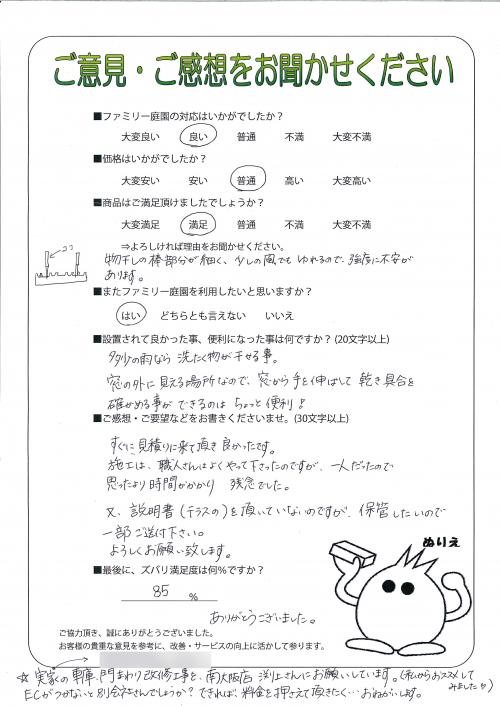 ご意見・ご感想をお聞かせください
■ファミリー庭園の対応はいかがでしたか？
大変良い 良い 普通 不満 大変不満
■価格はいかがでしたか？
大変安い 安い 普通 高い 大変高い
■商品はご満足頂けましたでしょうか？
大変満足 満足 普通 不満 大変不満
⇒よろしければ理由をお聞かせください。
ココ
物干しの棒部分が細く、少しの風でもゆれるので、強度に不安が
あります。
■またファミリー庭園を利用したいと思いますか？
はい どちらとも言えない いいえ
■設置されて良かった事、便利になった事は何ですか？(20文字以上)
多少の雨なら洗たく物が干せる事。
窓の外に見える場所なので、窓から手を伸ばして乾き具合を
確かめる事ができるのはちょっと便利！
■ご感想・ご要望などをお書きくださいませ。(30文字以上)
すぐに見積りに来て頂き良かったです。
施工は、職人さんはよくやって下さったのですが、一人だったので
思ったより時間がかかり 残念でした。
又、説明書(テラスの)を頂いていないのですが、保管したいので
一部ご送付下さい。
よろしくお願い致します。
ぬりえ
■最後に、ズバリ満足度は何%ですか？
85 %
ありがとうございました。
ご協力頂き、誠にありがとうございました。
お客様の貴重な意見を参考に、改善・サービスの向上に活かして参ります。
☆実家の車庫、門まわり改修工事を、南大阪店 渕上さんにお願いしています。(私からおススメして
みましたが)
ECがつかないと別会社さんでしょうか？できれば、料金を押さえて頂きたく…おねがいします。